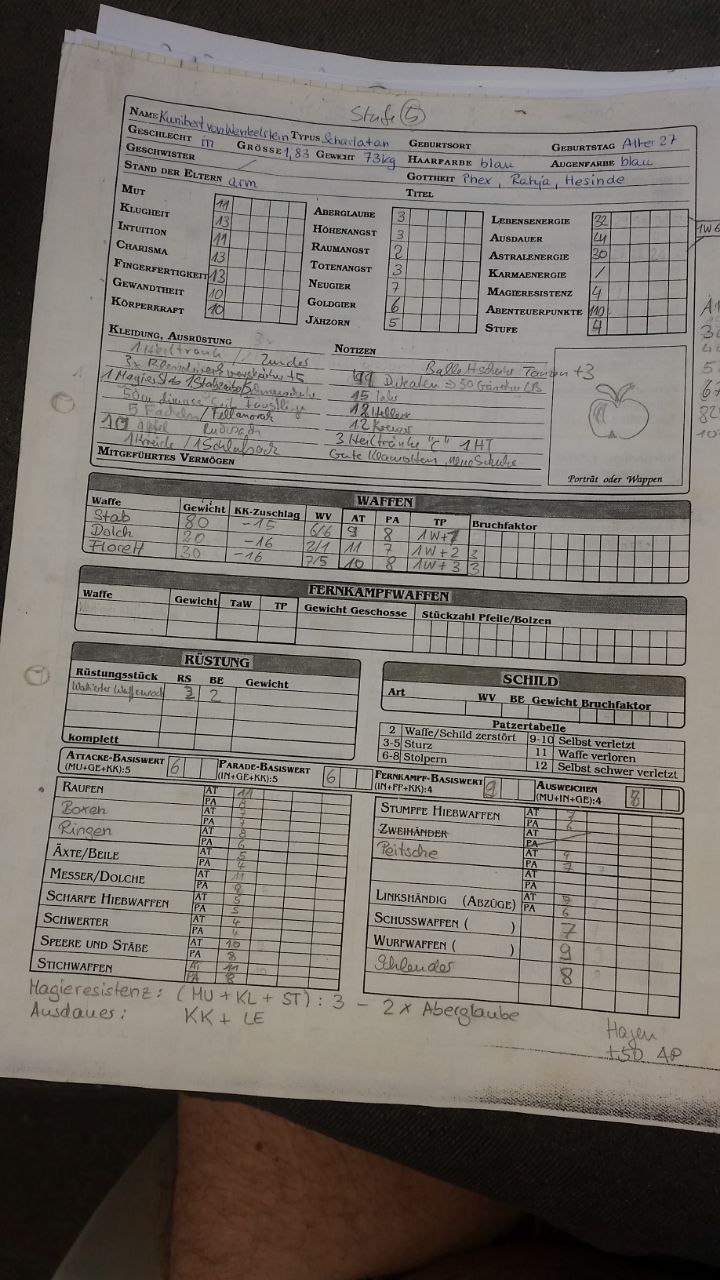 Stufe 5
NAME Kunibert von Wenkelstein TYPUS Scharlatan GEBURTSORT GEBURTSTAG Alter 27
GESCHLECHT m GRÖSSE 1,83 GEWICHT 73kg HAARFARBE blau AUGENFARBE blau
GESCHWISTER / GOTTHEIT Phex, Rahja, Hesinde
STAND DER ELTERN arm TITEL
MUT 11
KLUGHEIT 13
INTUITION 11
CHARISMA 13
FINGERFERTIGKEIT 13
GEWANDTHEIT 10
KÖRPERKRAFT 10
ABERGLAUBE 3
HÖHENANGST 3
RAUMANGST 2
TOTENANGST 3
NEUGIER 7
GOLDGIER 6
JÄHZORN 5
LEBENSENERGIE 32
AUSDAUER
ASTRALENERGIE 30
KARMAENERGIE /
MAGIERESISTENZ 4
ABENTEUERPUNKTE 110
STUFE 4
1W6
KLEIDUNG, AUSRÜSTUNG
1 Heiltrank // Zunder
1 Magier Stab
5 Fackeln/
10 Äpfel
1 Kreide / 1 Schlafsack
MITGEFÜHRTES VERMÖGEN
NOTIZEN
Tanzen +3
Dukaten
15 Taler
12 Heller
12 Kreuzer
3 Heiltränke "C" 1HT
Gute Klamotten, neue Schuhe
Porträt oder Wappen
WAFFEN
Waffe Gewicht KK-Zuschlag WV AT PA TP Bruchfaktor
Stab 80 -15 6/6 9 8 1W+1
Dolch 20 -16 2/1 11 7 1W+2 3
Florett 30 -16 7/5 10 8 1W+3 3
FERNKAMPFWAFFEN
Waffe Gewicht TaW TP Gewicht Geschosse Stückzahl Pfeile/Bolzen
RÜSTUNG
Rüstungsstück RS BE Gewicht
Wattierter Waffenrock 3 2
komplett
SCHILD
Art WV BE Gewicht Bruchfaktor
Patzertabelle
2 Waffe/Schild zerstört 9-10 Selbst verletzt
3-5 Sturz 11 Waffe verloren
6-8 Stolpern 12 Selbst schwer verletzt
ATTACKE-BASISWERT (MU+GE+KK):5 6
PARADE-BASISWERT (IN+GE+KK):5 6
FERNKAMPF-BASISWERT (IN+FF+KK):4 9
AUSWEICHEN (MU+IN+GE):4 8
RAUFEN AT 11 PA
Boxen AT PA
Ringen AT 8 PA 6
ÄXTE/BEILE AT 5 PA 4
MESSER/DOLCHE AT 11 PA 9
SCHARFE HIEBWAFFEN AT 5 PA 5
SCHWERTER AT 4 PA 4
SPEERE UND STÄBE AT 10 PA 8
STICHWAFFEN AT 11 PA 8
STUMPFE HIEBWAFFEN AT 7 PA 6
ZWEIHÄNDER AT PA
Peitsche AT 9 PA 7
AT PA
LINKSHÄNDIG (ABZÜGE) AT PA 6
SCHUSSWAFFEN ( ) 7
WURFWAFFEN ( ) 9
Schleuder 8
Magieresistenz: (MU + KL + ST) : 3 - 2 x Aberglaube
Ausdauer: KK + LE
Hagen
+50 AP